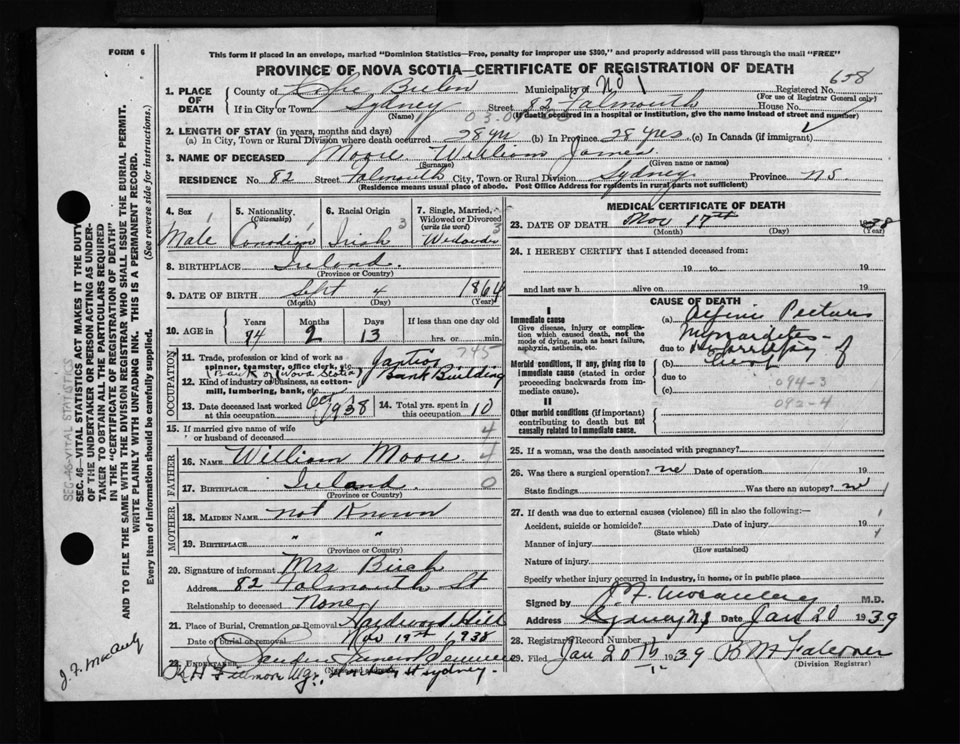 FORM 6
This form if placed in an envelope, marked "Dominion Statistics—Free, penalty for improper use $300," and properly addressed will pass through the mail "FREE"
PROVINCE OF NOVA SCOTIA—CERTIFICATE OF REGISTRATION OF DEATH
658
1. PLACE OF DEATH
County of Cape Breton Municipality of No 1 Registered No.
(For use of Registrar General only)
If in City or Town Sydney Street 82 Falmouth House No.
(Name) (If death occurred in a hospital or institution, give the name instead of street and number)
2. LENGTH OF STAY (in years, months and days)
(a) In City, Town or Rural Division where death occurred 28 yrs (b) In Province 28 yrs (c) In Canada (if immigrant)
3. NAME OF DECEASED Moore William James
(Surname) (Given name or names)
RESIDENCE No. 82 Street Falmouth City, Town or Rural Division Sydney Province NS
(Residence means usual place of abode. Post Office Address for residents in rural parts not sufficient)
4. Sex
Male
5. Nationality (Citizenship)
Canadian
6. Racial Origin
Irish 3
7. Single, Married, Widowed or Divorced (write the word)
Widower 3
8. BIRTHPLACE Ireland
(Province or Country)
9. DATE OF BIRTH Sept 4 1864
(Month) (Day) (Year)
10. AGE in
Years Months Days If less than one day old
74 2 13 hrs. or min.
OCCUPATION
11. Trade, profession or kind of work as spinner, teamster, office clerk, etc. Janitor 745
(Bank of Nova Scotia)
12. Kind of industry or business, as cotton-mill, lumbering, bank, etc. Bank Building
13. Date deceased last worked at this occupation Oct 1938
14. Total yrs. spent in this occupation 10
15. If married give name of wife or husband of deceased 4
FATHER
16. NAME William Moore 4
17. BIRTHPLACE Ireland 0
(Province or Country)
MOTHER
18. MAIDEN NAME Not Known
19. BIRTHPLACE " "
(Province or Country)
20. Signature of informant Mrs
Address 82 Falmouth St
Relationship to deceased None
21. Place of Burial, Cremation or Removal Hardwood Hill
Date of burial or removal Nov 19th 1938
22. UNDERTAKER
Mgr., Sydney.
MEDICAL CERTIFICATE OF DEATH
23. DATE OF DEATH Nov 17th 1938
(Month) (Day) (Year)
24. I HEREBY CERTIFY that I attended deceased from:
19 to 19
and last saw h alive on 19
CAUSE OF DEATH
I
Immediate cause
Give disease, injury or complication which caused death, not the mode of dying, such as heart failure, asphyxia, asthenia, etc.
(a) Angina Pectoris
due to
Morbid conditions, if any, giving rise to immediate cause (stated in order proceeding backwards from immediate cause).
(b)
due to 094-3
(c)
II
092-4
Other morbid conditions (if important) contributing to death but not causally related to immediate cause.
25. If a woman, was the death associated with pregnancy?
26. Was there a surgical operation? no Date of operation 19
State findings Was there an autopsy? no
27. If death was due to external causes (violence) fill in also the following:—
Accident, suicide or homicide? Date of injury 19
(State which)
Manner of injury
(How sustained)
Nature of injury
Specify whether injury occurred in industry, in home, or in public place
Signed by M.D.
Address Sydney NS Date Jan 20 1939
28. Registrars Record Number
29. Filed Jan 20th 1939
(Division Registrar)
SEC. 46—VITAL STATISTICS
SEC. 46—VITAL STATISTICS ACT MAKES IT THE DUTY
OF THE UNDERTAKER OR PERSON ACTING AS UNDER-
TAKER TO OBTAIN ALL THE PARTICULARS REQUIRED
IN THE "CERTIFICATE OF REGISTRATION OF DEATH"
AND TO FILE THE SAME WITH THE DIVISION REGISTRAR WHO SHALL ISSUE THE BURIAL PERMIT.
WRITE PLAINLY WITH UNFADING INK. THIS IS A PERMANENT RECORD.
Every item of information should be carefully supplied. (See reverse side for instructions.)